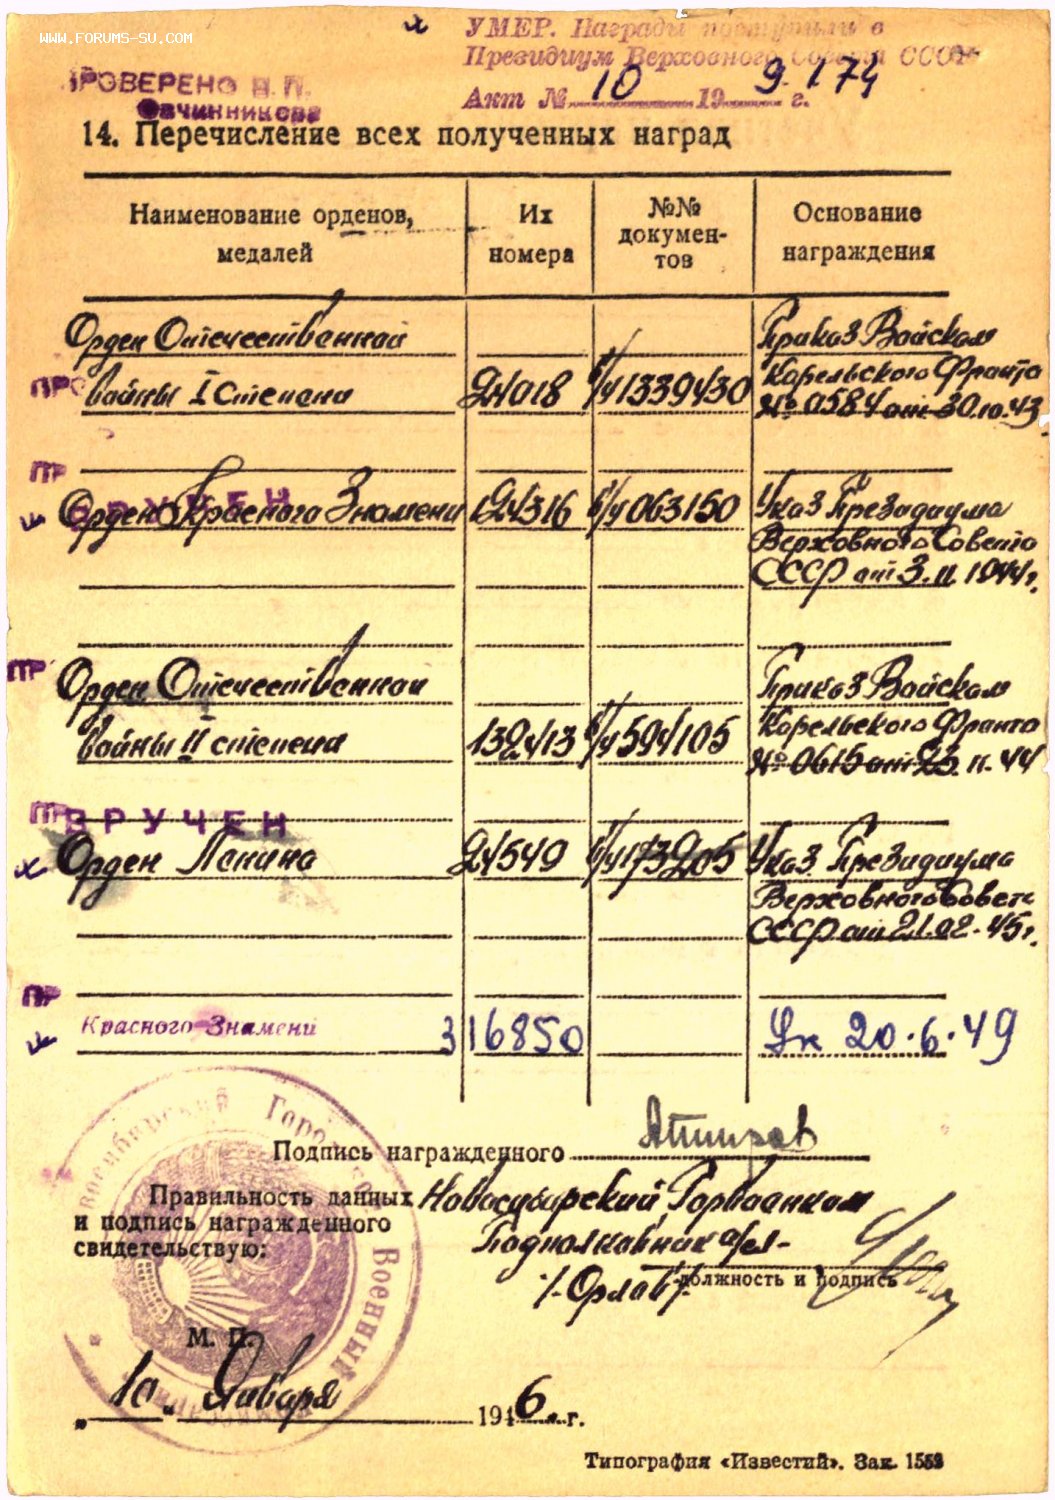 WWW.FORUMS-SU.COM
УМЕР. Награды поступили в
Президиум Верховного Совета СССР
Акт № 10 19 г. 9.1.74
ПРОВЕРЕНО В.П.
Овчинникова
14. Перечисление всех полученных наград
Наименование орденов, медалей
Их номера
№№ докумен-тов
Основание награждения
Орден Отечественной
Приказ Войскам
ПРО
войны I степени 24018 б/ч 1339430 Карельского Фронта
№ 0584 от 30.10.43
ПР
ВРУЧЕН
Орден Красного Знамени 124316 б/ч 063150 Указ Президиума
Верховного Совета
СССР от 3.11.1944 г.
ПР
Орден Отечественной Приказ Войскам
войны II степени 132413 б/ч 594105 Карельского Фронта
№ 0615 от 23.11.44
ПР
ВРУЧЕН
Орден Ленина 24549 б/ч 173205 Указ Президиума
Верховного Совета
СССР от 21.02.45 г.
ПР
Красного Знамени 316850 Ук 20.6.49
Городской Военный
Подпись награжденного
Правильность данных Новосибирский Горвоенком
и подпись награжденного
свидетельствую:
Подполковник
/Орлов/
должность и подпись
М. П.
„10“ Января 1946. г.
Типография «Известий». Зак. 1553